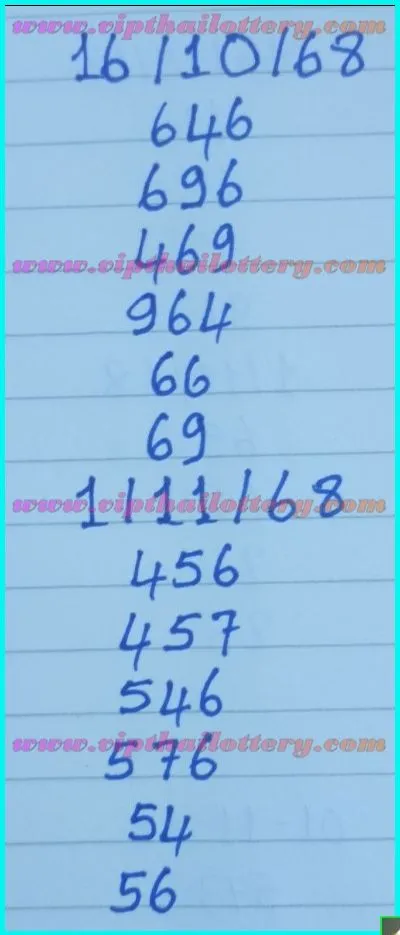 www.vipthailottery.com
16/10/68
646
696
469
www.vipthailottery.com
964
66
69
1/11/68
www.vipthailottery.com
456
457
546
www.vipthailottery.com
576
54
56